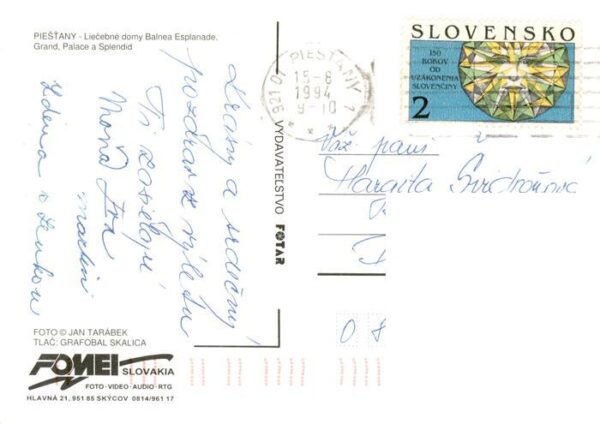 PIEŠŤANY - Liečebné domy Balnea Esplanade,
Grand, Palace a Splendid
Krásny a srdečný
pozdrav z výletu
Ti posielajú
Zdena v Lenkou
FOTO © JAN TARÁBEK
TLAČ: GRAFOBAL SKALICA
FOMEI SLOVAKIA
FOTO · VIDEO · AUDIO · RTG
HLAVNÁ 21, 951 85 SKÝCOV 0814/961 17
VYDAVATEĽSTVO FOTAR
921 01 PIEŠŤANY 1
15-8
1994
9-10
SLOVENSKO
150
ROKOV OD
UZÁKONENIA
SLOVENČINY
2
Váž. pani
0 8